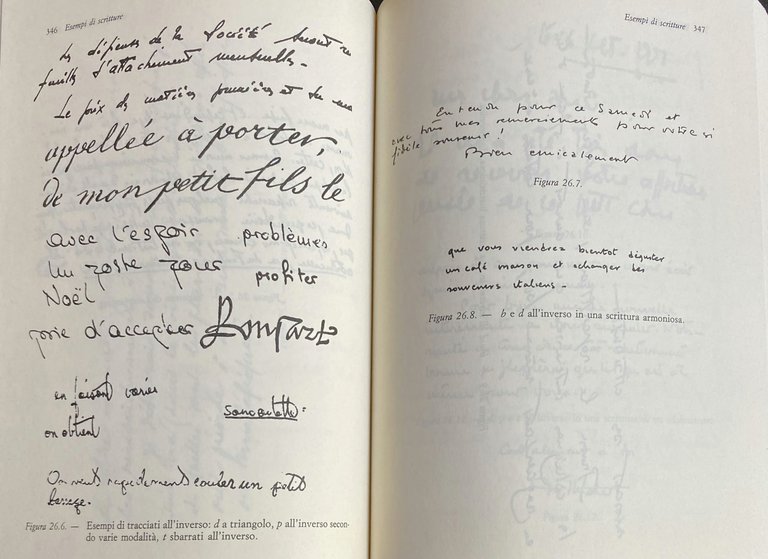 346 Esempi di scritture
Les dépenses de la Société seront
feuilles d'attachement mensuelles -
Le prix des matières premières et
appellée à porter,
de mon petit fils le
avec l'espoir problèmes
un poste pour profiter
Noël
prie d'accepter
en faisant varier
on obtient
On veut rapidement écouter un petit
Figura 26.6. — Esempi di tracciati all'inverso: d a triangolo, p all'inverso secon-
do varie modalità, t sbarrati all'inverso.
Esempi di scritture 347
Entendu pour ce Samedi et
avec tous mes remerciements pour votre si
fidèle souvenir !
Bien amicalement
Figura 26.7.
que vous viendrez bientôt déguster
un café maison et échanger des
souvenirs italiens -
Figura 26.8. — b e d all'inverso in una scrittura armoniosa.